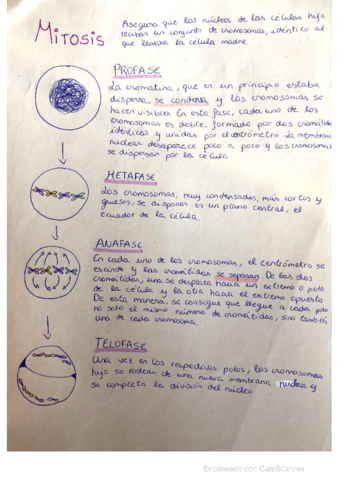 MITOSIS
Asegura que los núcleos de las células hija
reciban un conjunto de cromosomas, idéntico al
que llevaba la célula madre.
PROFASE
La cromatina, que en un principio estaba
dispersa, se condensa y los cromosomas se
hacen visibles. En esta fase, cada uno de los
cromosomas es doble, formado por dos cromátidas
idénticas y unidas por el centrómetro. La membrana
nuclear desaparece poco a poco y los cromosomas
se dispersan por la célula
METAFASE
Los cromosomas, muy condensados, más cortos y
gruesos, se disponen en un plano central, el
ecuador de la célula.
ANAFASE
En cada uno de los cromosomas, el centrómetro se
escinde y las cromátidas se separan. De las dos
cromátidas, una se desplaza hacia un extremo o polo
de la célula y la otra hacia el extremo opuesto
De esta manera, se consigue que llegue a cada polo
no solo el mismo número de cromátidas, sino también
una de cada cromosoma.
TELOFASE
Una vez en los respectivos polos, los cromosomas
hijo se rodean de una nueva membrana nuclear y
se completa la división del núcleo
Escaneado con CamScanner